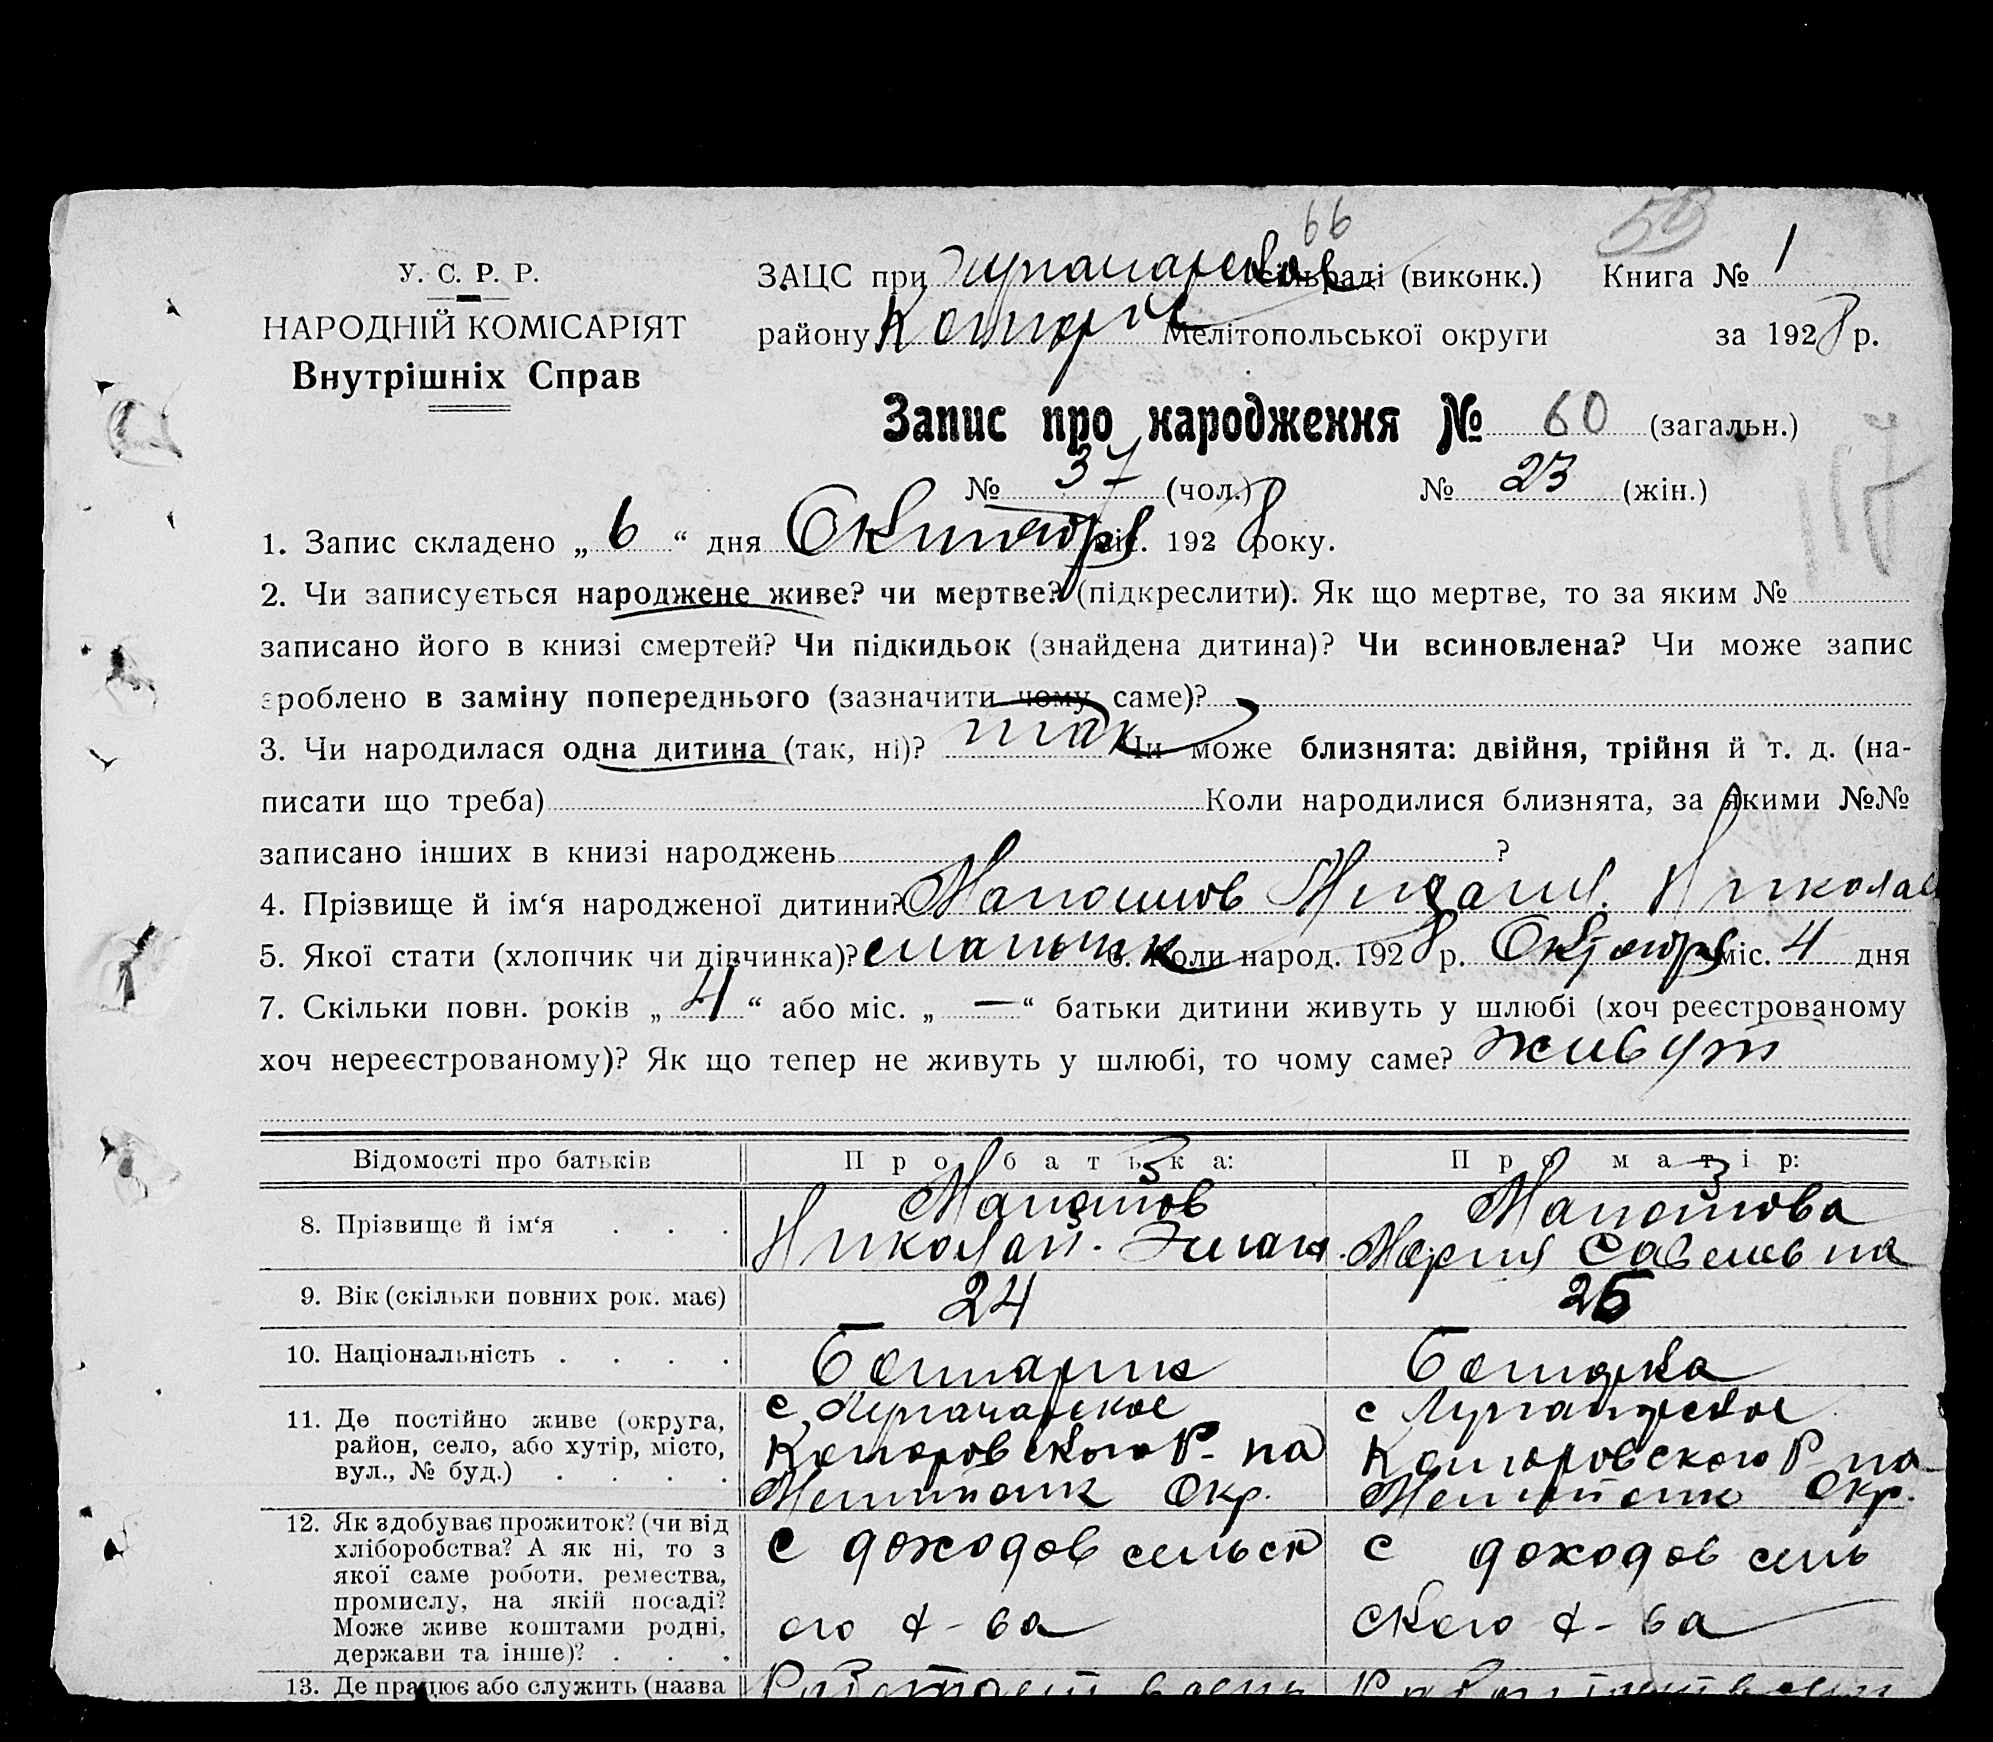 66 58
У. С. Р. Р.
НАРОДНІЙ КОМІСАРІЯТ
Внутрішніх Справ
ЗАЦС при сільраді (виконк.) Книга № 1
району Мелітопольської округи за 1928 р.
Запис про народження № 60 (загальн.)
№ 37 (чол.) № 23 (жін.)
1. Запис складено „ 6 “ дня Октября міс. 1928 року.
2. Чи записується народжене живе? чи мертве? (підкреслити). Як що мертве, то за яким №
записано його в книзі смертей? Чи підкидьок (знайдена дитина)? Чи всиновлена? Чи може запис
зроблено в заміну попереднього (зазначити чому саме)?
3. Чи народилася одна дитина (так, ні)? так Чи може близнята: двійня, трійня й т. д. (на-
писати що треба) Коли народилися близнята, за якими №№
записано інших в книзі народжень ?
4. Прізвище й ім‘я народженої дитини? Николае
5. Якої стати (хлопчик чи дівчинка)? мальчик 6. Коли народ. 1928 р. Октября міс. 4 дня
7. Скільки повн. років „ 4 “ або міс. „ — “ батьки дитини живуть у шлюбі (хоч реєстрованому
хоч нереєстрованому)? Як що тепер не живуть у шлюбі, то чому саме? живут
Відомості про батьків Про батька: Про матір:
8. Прізвище й ім‘я . . .
Николай. Мария Савельевна
9. Вік (скільки повних рок. має) 24 25
10. Національність . . . . Болгарин Болгарка
11. Де постійно живе (округа,
район, село, або хутір, місто,
вул., № буд.) . . . .
с. с
Р-на Р-на
Окр. Окр.
12. Як здобуває прожиток? (чи від
хліборобства? А як ні, то з
якої саме роботи, ремества,
промислу, на якій посаді?
Може живе коштами родні,
держави та інше)? . . .
с доходов сельск
ого х-ва
с доходов сель
ского х-ва
13. Де працює або служить (назва Работает Работает